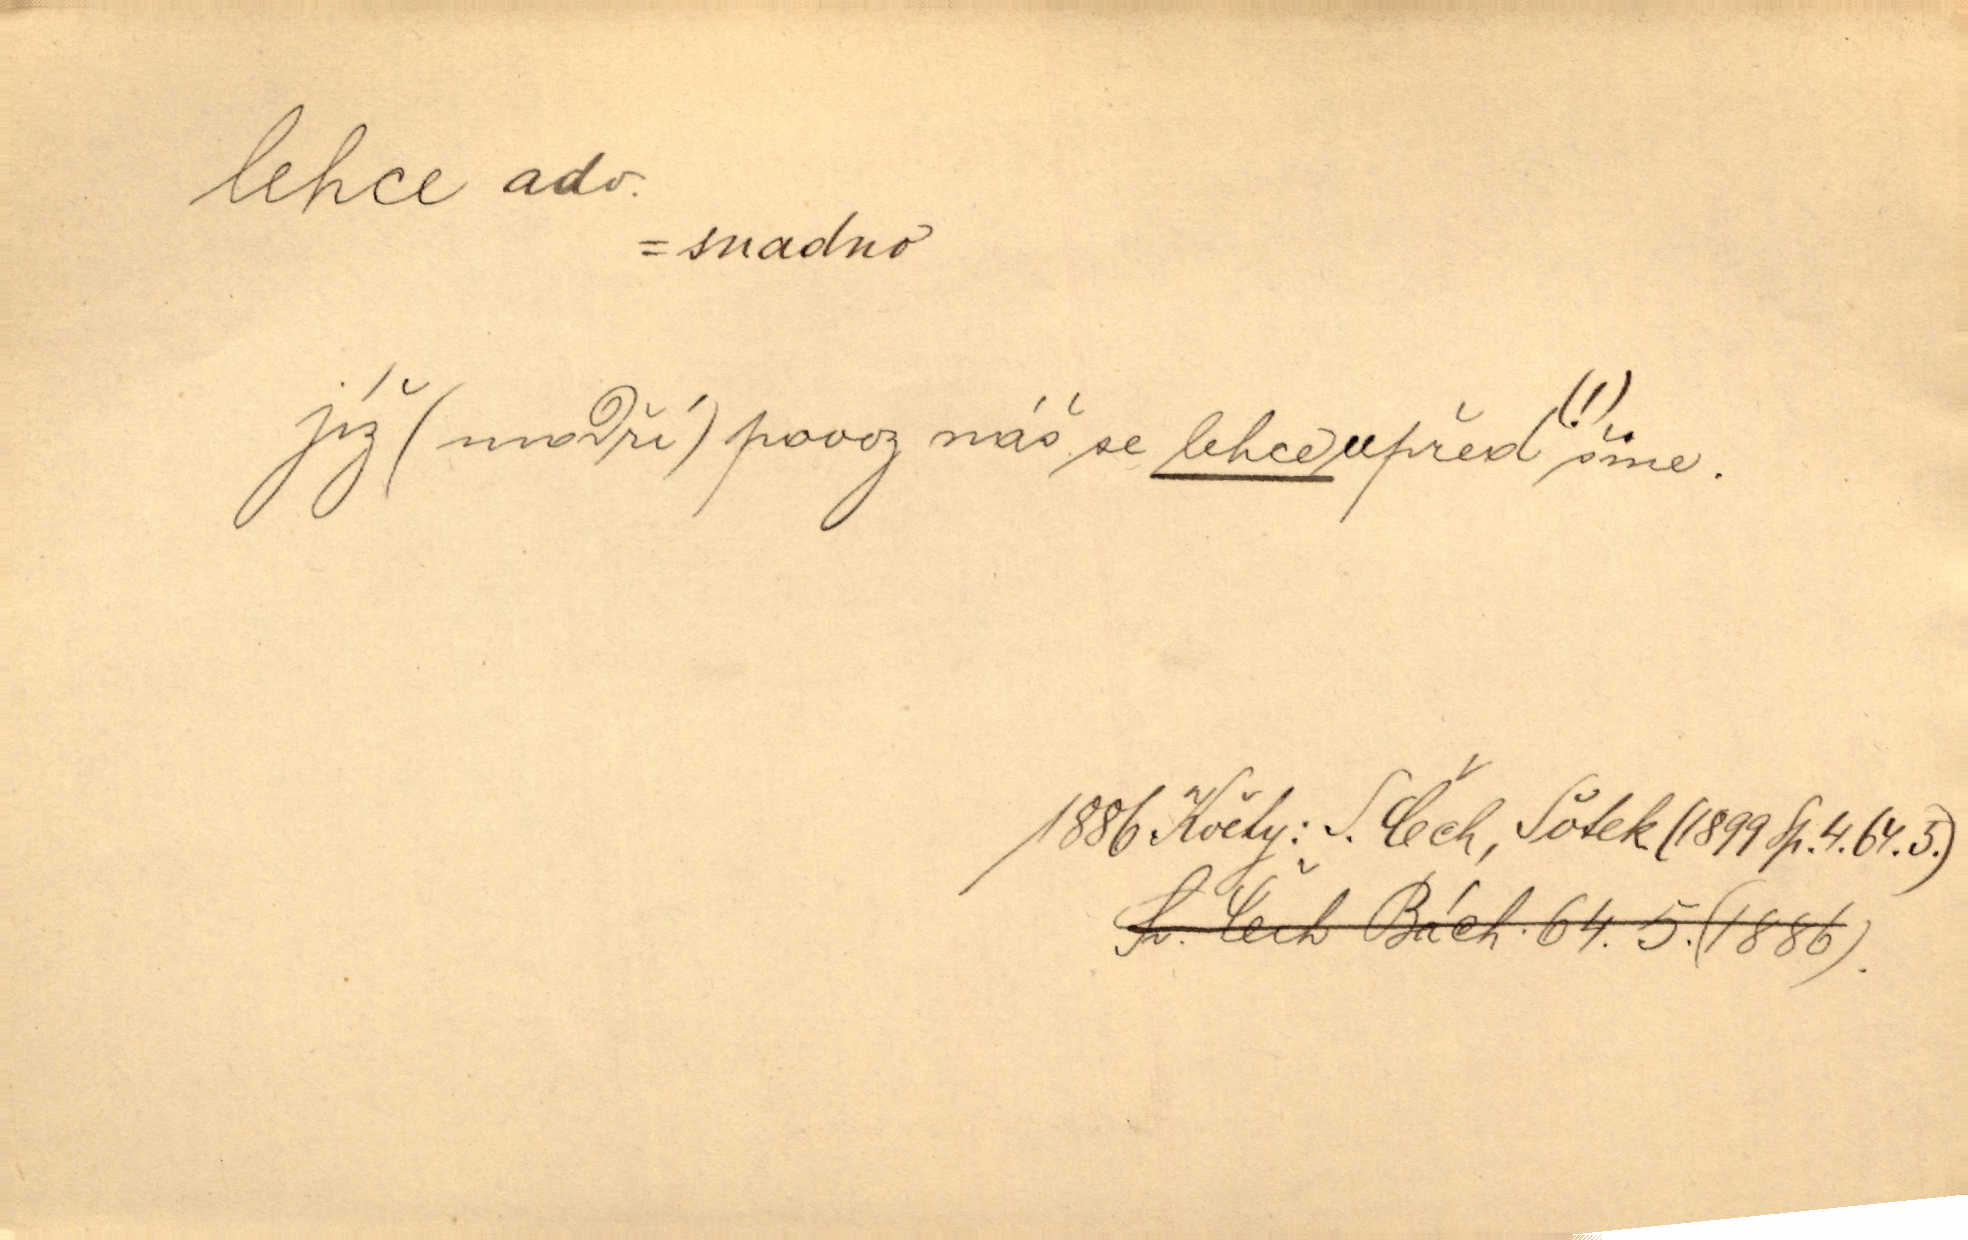 lehce adv.
= snadno
jíž (modří) povoz náš se lehce upřed (!) šine.
1886 Květy: S. Čech, Šotek (1899 Sp. 4. 64. 5.)
Sv. Čech Bách. 64. 5. (1886).